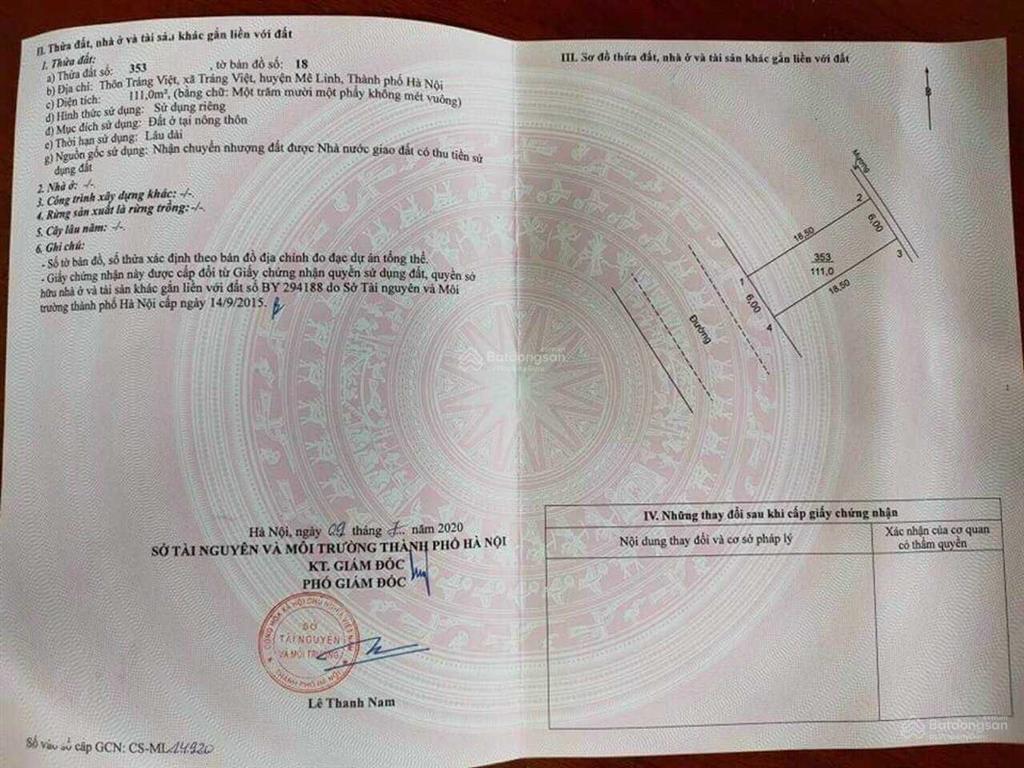 II. Thửa đất, nhà ở và tài sản khác gắn liền với đất
1. Thửa đất:
a) Thửa đất số: 353 , tờ bản đồ số: 18
b) Địa chỉ: Thôn Tráng Việt, xã Tráng Việt, huyện Mê Linh, Thành phố Hà Nội
c) Diện tích: 111,0m², (bằng chữ: Một trăm mười một phẩy không mét vuông)
d) Hình thức sử dụng: Sử dụng riêng
đ) Mục đích sử dụng: Đất ở tại nông thôn
e) Thời hạn sử dụng: Lâu dài
g) Nguồn gốc sử dụng: Nhận chuyển nhượng đất được Nhà nước giao đất có thu tiền sử
dụng đất
2. Nhà ở: -/-.
3. Công trình xây dựng khác: -/-.
4. Rừng sản xuất là rừng trồng: -/-.
5. Cây lâu năm: -/-.
6. Ghi chú:
- Số tờ bản đồ, số thửa xác định theo bản đồ địa chính đo đạc dự án tổng thể.
- Giấy chứng nhận này được cấp đổi từ Giấy chứng nhận quyền sử dụng đất, quyền sở
hữu nhà ở và tài sản khác gắn liền với đất số BY 294188 do Sở Tài nguyên và Môi
trường thành phố Hà Nội cấp ngày 14/9/2015.
Hà Nội, ngày 09 tháng năm 2020
SỞ TÀI NGUYÊN VÀ MÔI TRƯỜNG THÀNH PHỐ HÀ NỘI
KT. GIÁM ĐỐC
PHÓ GIÁM ĐỐC
CỘNG HÒA XÃ HỘI CHỦ NGHĨA VIỆT NAM
SỞ
TÀI NGUYÊN
VÀ MÔI TRƯỜNG
THÀNH PHỐ HÀ NỘI
Lê Thanh Nam
Số vào sổ cấp GCN: CS-ML 14920
III. Sơ đồ thửa đất, nhà ở và tài sản khác gắn liền với đất
B
Mương
2
6,00
3
18,50
353
111,0
18,50
1
6,00
4
Đường
Batdongsan
IV. Những thay đổi sau khi cấp giấy chứng nhận
Nội dung thay đổi và cơ sở pháp lý
Xác nhận của cơ quan
có thẩm quyền
Batdongsan